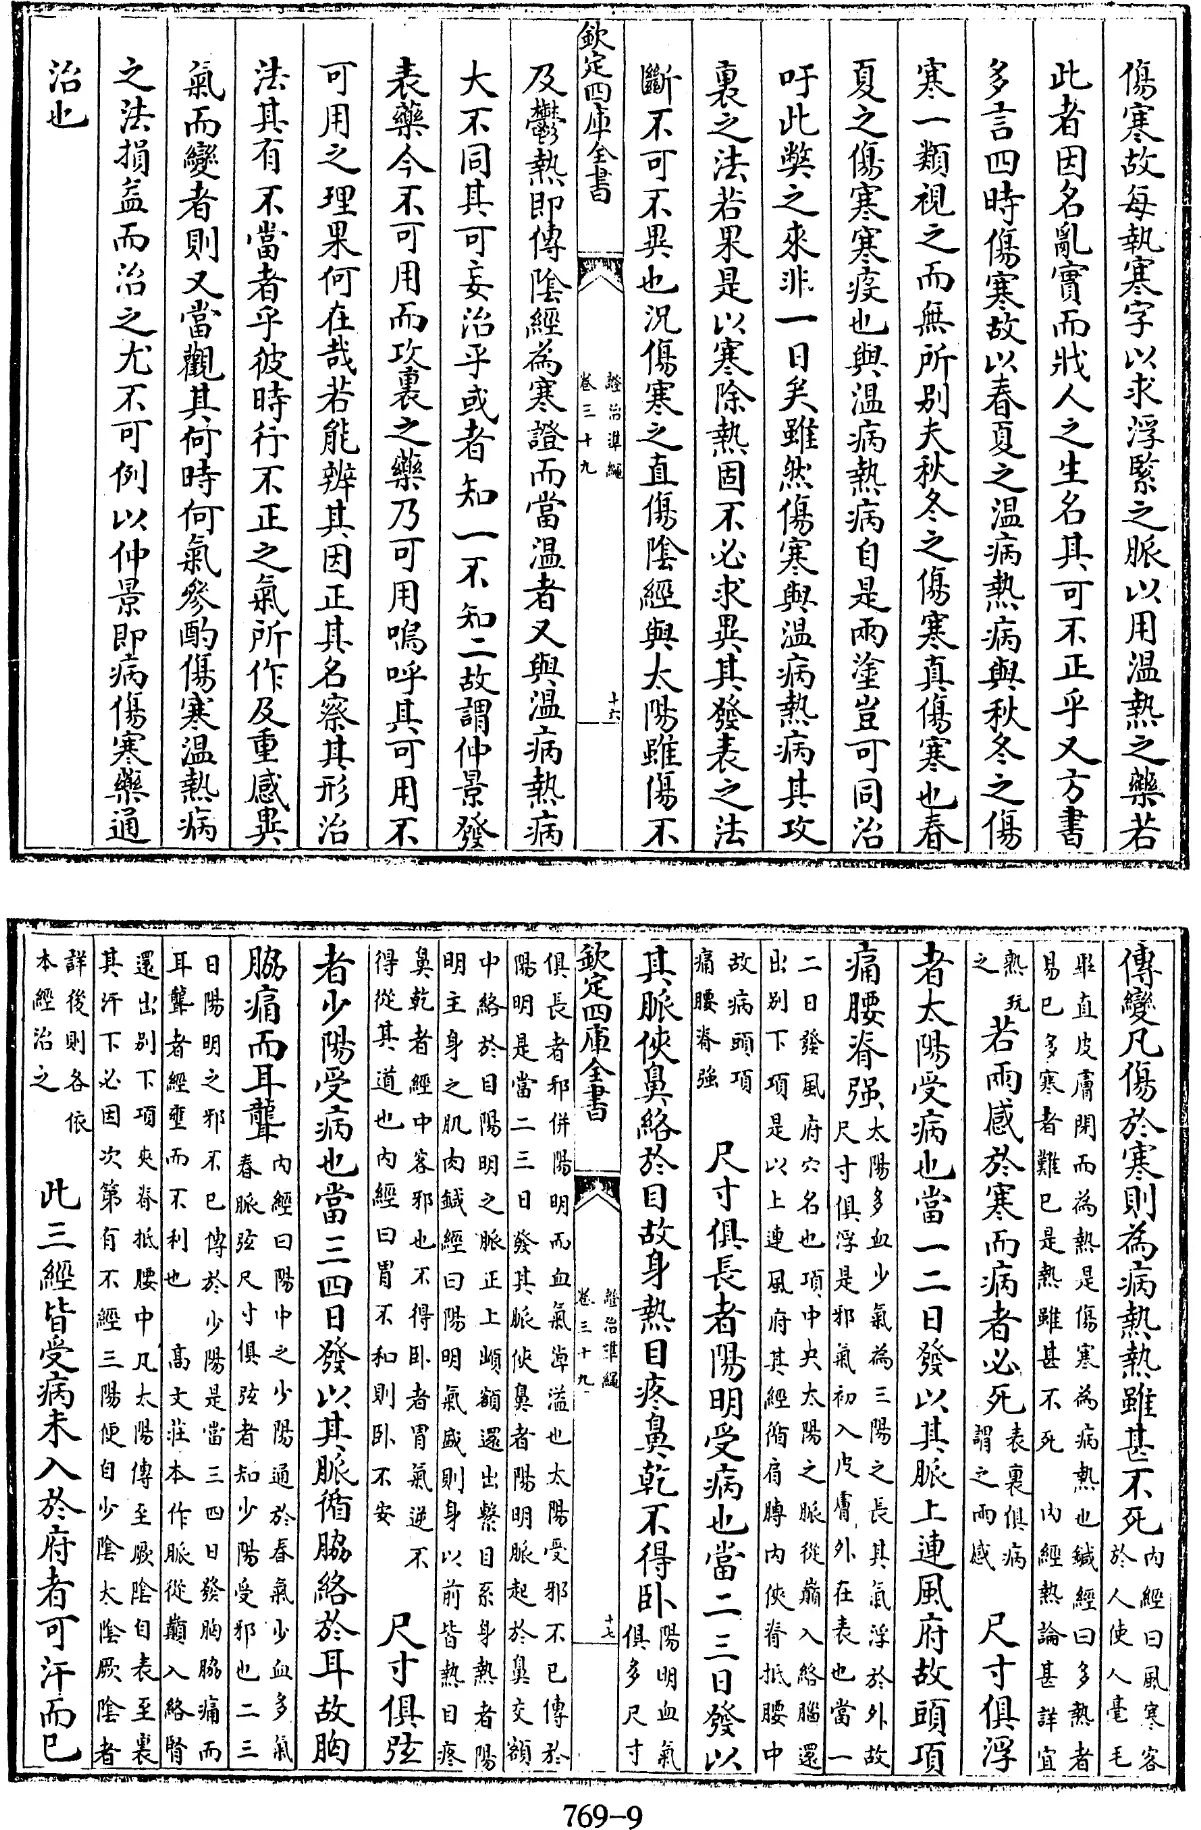 傷寒故每執寒字以求浮緊之脈以用温熱之藥若
此者因名亂實而戕人之生名其可不正乎又方書
多言四時傷寒故以春夏之温病熱病與秋冬之傷
寒一類視之而無所别夫秋冬之傷寒真傷寒也春
夏之傷寒寒疫也與温病熱病自是兩塗豈可同治
吁此弊之來非一日矣雖然傷寒與温病熱病其攻
裏之法若果是以寒除熱固不必求異其發表之法
斷不可不異也況傷寒之直傷陰經與太陽雖傷不
欽定四庫全書
證治準繩
卷三十九
十六
及鬱熱即傳陰經為寒證而當温者又與温病熱病
大不同其可妄治乎或者知一不知二故謂仲景發
表藥今不可用而攻裏之藥乃可用嗚呼其可用不
可用之理果何在哉若能辨其因正其名察其形治
法其有不當者乎彼時行不正之氣所作及重感異
氣而變者則又當觀其何時何氣參酌傷寒温熱病
之法損益而治之尤不可例以仲景即病傷寒藥通
治也
傳變凡傷於寒則為病熱熱雖甚不死内經曰風寒客
於人使人毫毛
畢直皮膚閉而為熱是傷寒為病熱也鍼經曰多熱者
易已多寒者難已是熱雖甚不死 内經熱論甚詳宜
熟玩
之
若兩感於寒而病者必死表裏俱病
謂之兩感
尺寸俱浮
者太陽受病也當一二日發以其脈上連風府故頭項
痛腰脊强太陽多血少氣為三陽之長其氣浮於外故
尺寸俱浮是邪氣初入皮膚外在表也當一
二日發風府穴名也項中央太陽之脈從巔入絡腦還
出别下項是以上連風府其經循肩膊内俠脊抵腰中
故病頭項
痛腰脊强
尺寸俱長者陽明受病也當二三日發以
其脈俠鼻絡於目故身熱目疼鼻乾不得卧陽明血氣
俱多尺寸
欽定四庫全書
證治準繩
卷三十九
十七
俱長者邪併陽明而血氣淖溢也太陽受邪不已傳於
陽明是當二三日發其脈俠鼻者陽明脈起於鼻交頞
中絡於目陽明之脈正上䪼額還出繫目系身熱者陽
明主身之肌肉鍼經曰陽明氣盛則身以前皆熱目疼
鼻乾者經中客邪也不得卧者胃氣逆不
得從其道也内經曰胃不和則卧不安
尺寸俱弦
者少陽受病也當三四日發以其脈循脇絡於耳故胸
脇痛而耳聾内經曰陽中之少陽通於春氣少血多氣
春脈弦尺寸俱弦者知少陽受邪也二三
日陽明之邪不已傳於少陽是當三四日發胸脇痛而
耳聾者經壅而不利也 高文莊本作脈從巔入絡腎
還出别下項夾脊抵腰中凡太陽傳至厥陰自表至裏
其汗下必因次第有不經三陽便自少陰太陰厥陰者
詳後則各依
本經治之
此三經皆受病未入於府者可汗而已
769-9